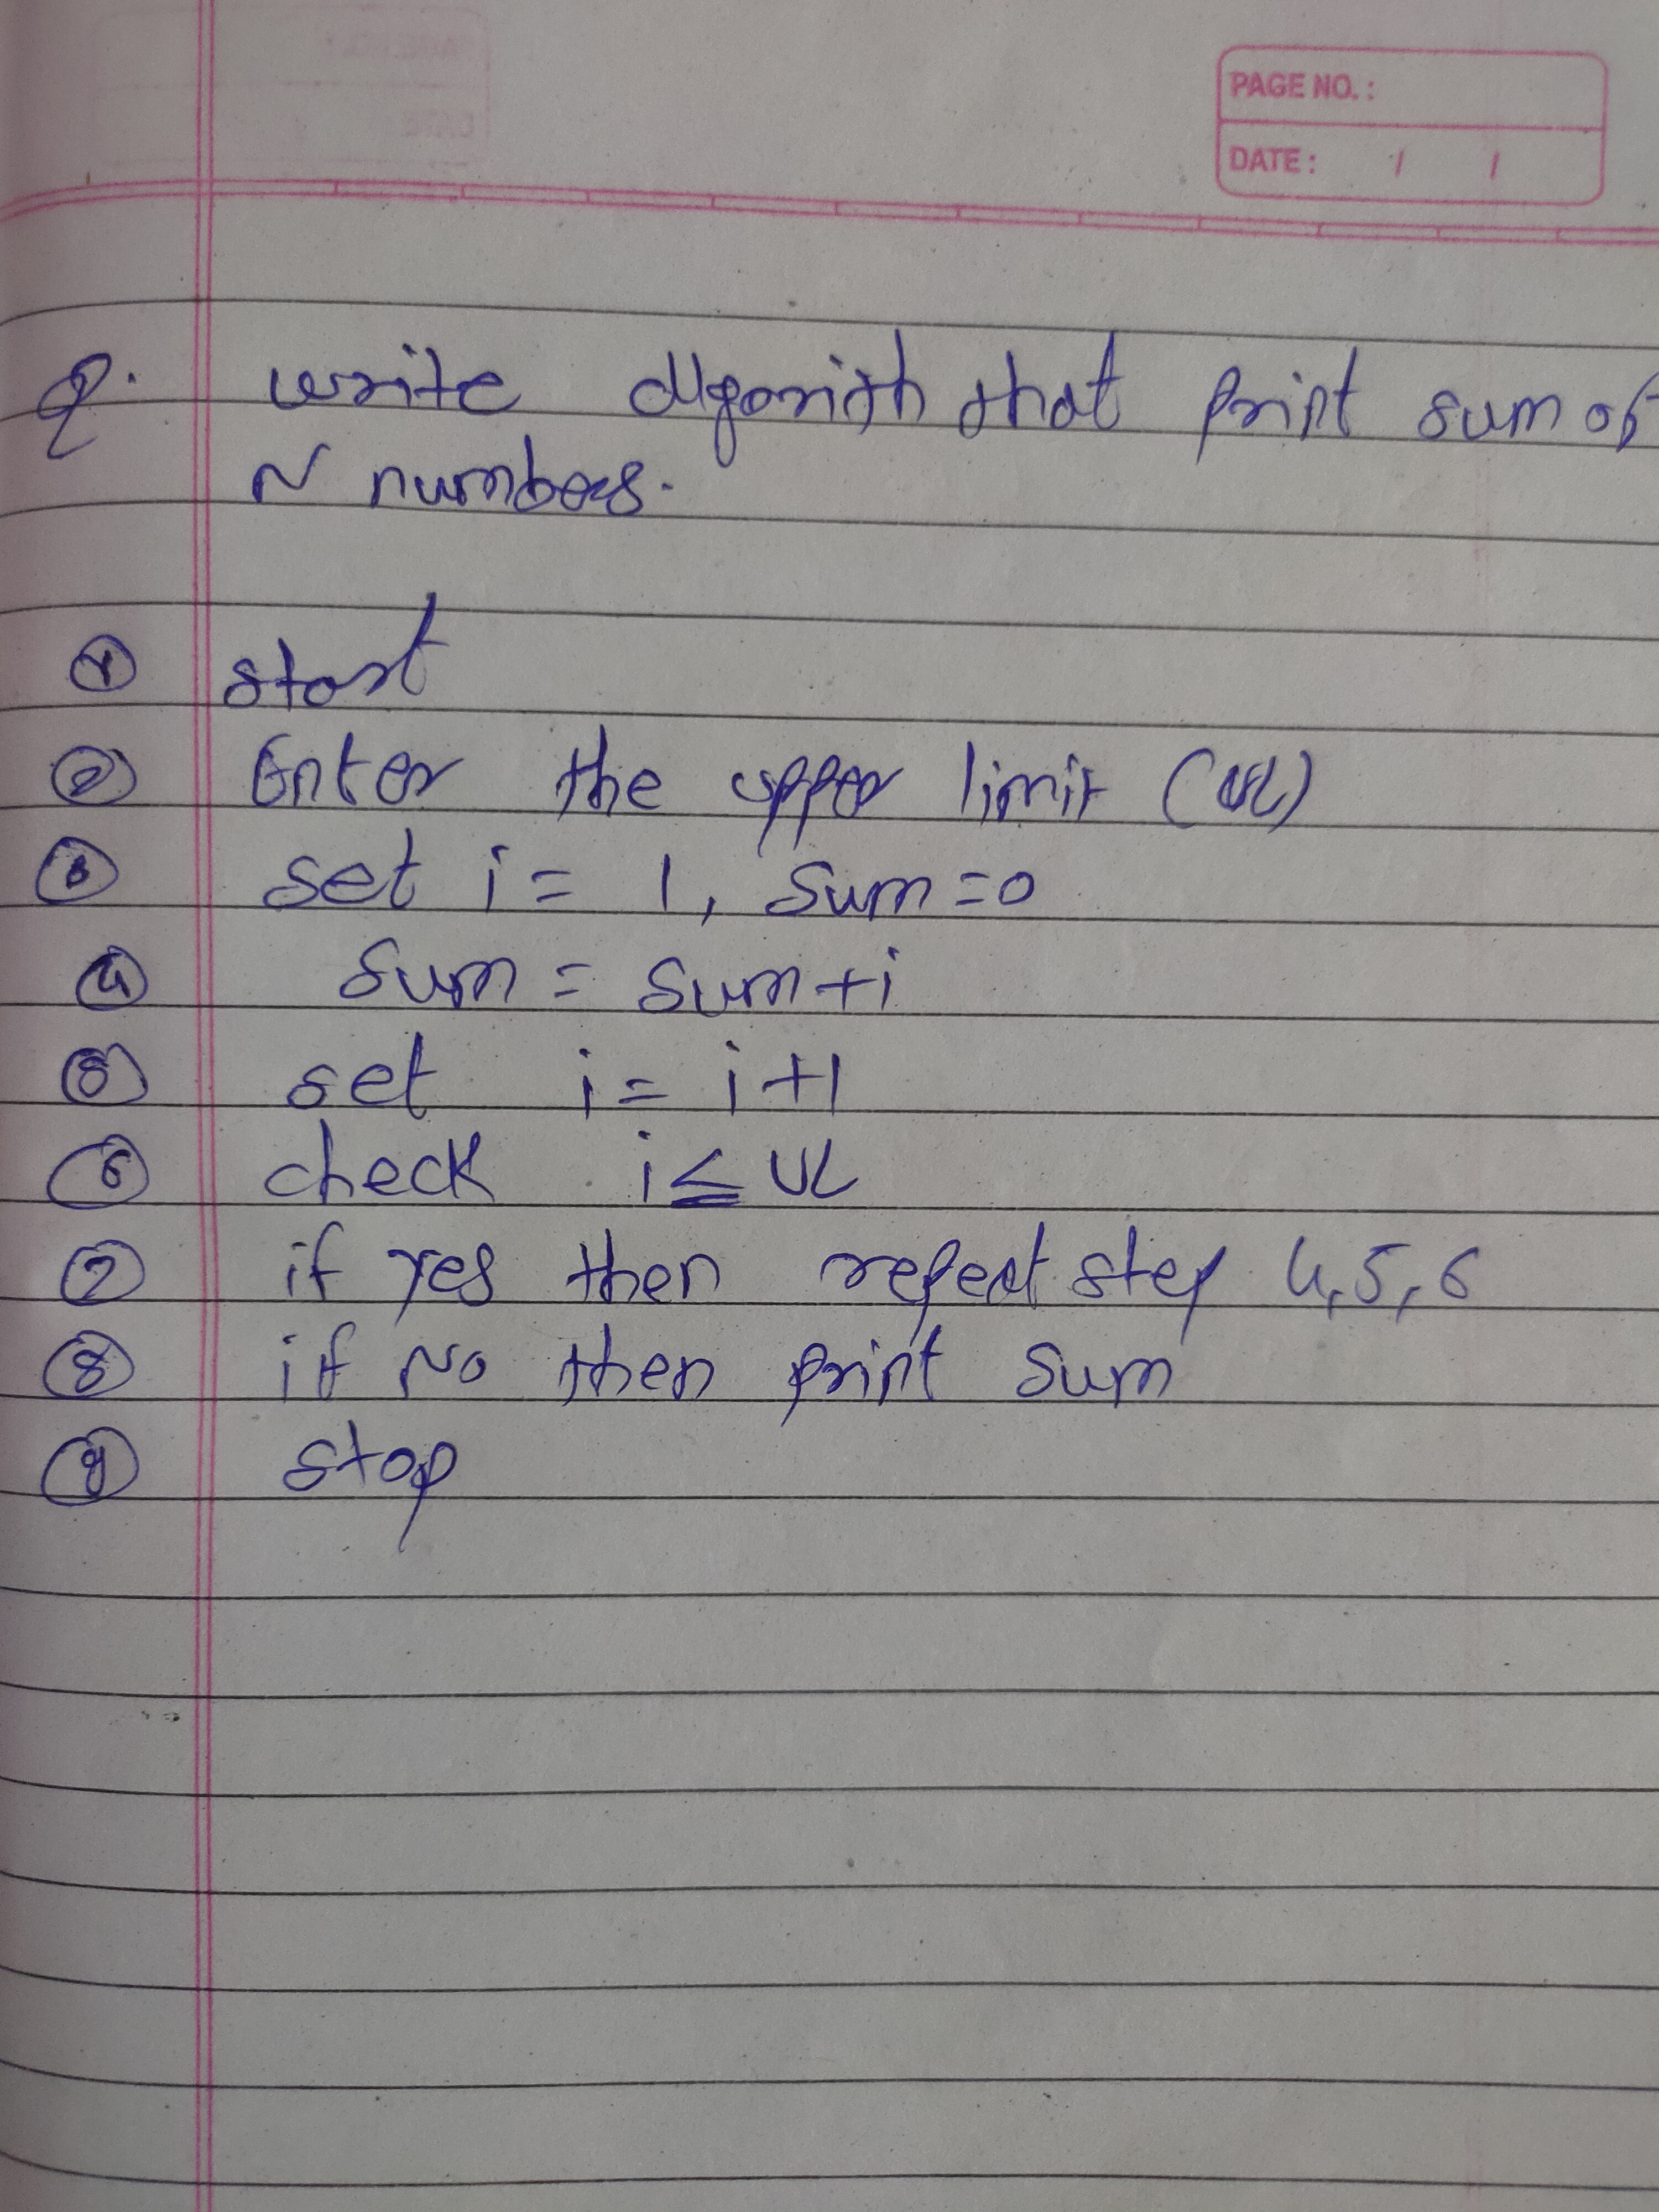 PAGE NO. :
DATE : / /
Q. write algorith that print sum of
N numbers.
① start
② Enter the upper limit (UL)
③ set i = 1, sum = 0
④ sum = sum + i
⑤ set i = i + 1
⑥ check i ≤ UL
⑦ if yes then repeat step 4, 5, 6
⑧ if No then print sum
⑨ stop